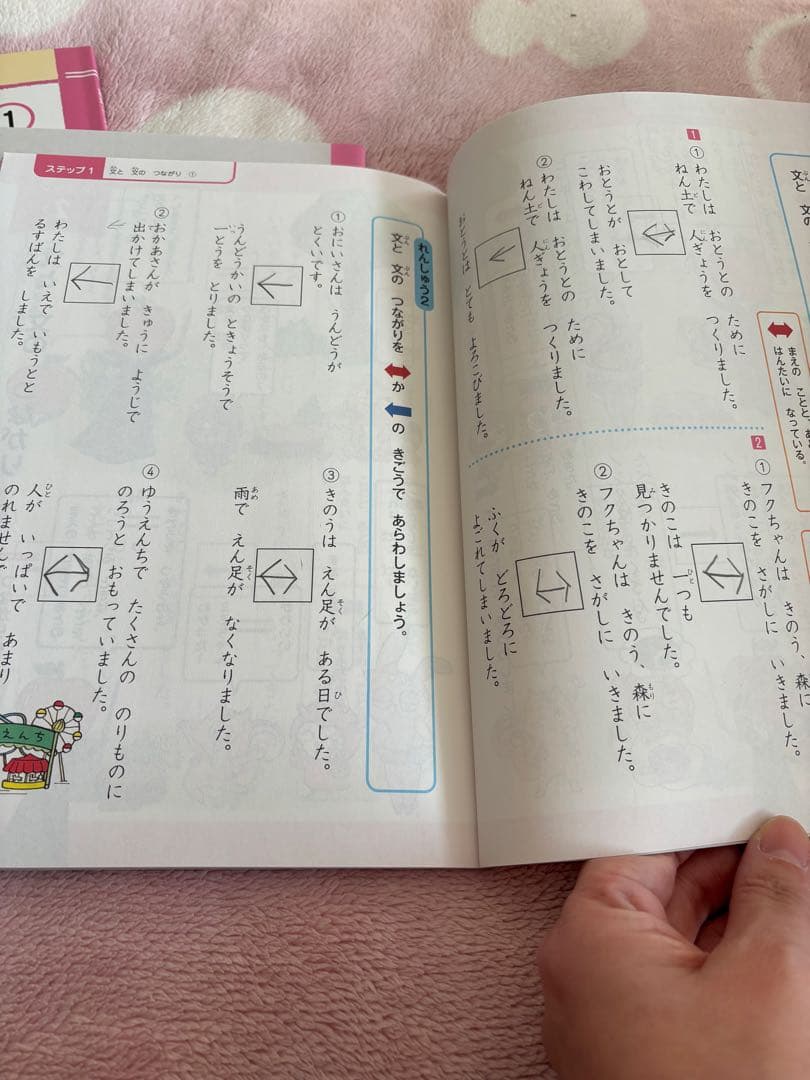 1
ステップ1 文と 文の つながり ①
文と 文の
まえの ことと、
はんたいに なっている。
1
① わたしは おとうとの ために
ねん土で 人ぎょうを つくりました。
おとうとが おとして
こわしてしまいました。
② わたしは おとうとの ために
ねん土で 人ぎょうを つくりました。
おとうとは とても よろこびました。
2
① フクちゃんは きのう、森に
きのこを さがしに いきました。
きのこは 一つも
見つかりませんでした。
② フクちゃんは きのう、森に
きのこを さがしに いきました。
ふくが どろどろに
よごれてしまいました。
れんしゅう2
文と 文の つながりを ↔か ←の きごうで あらわしましょう。
① おにいさんは うんどうが
とくいです。
うんどうかいの ときょうそうで
一とうを とりました。
② おかあさんが きゅうに ようじで
出かけてしまいました。
わたしは いえで いもうとと
るすばんを しました。
③ きのうは えん足が ある日でした。
雨で えん足が なくなりました。
④ ゆうえんちで たくさんの のりものに
のろうと おもっていました。
人が いっぱいで あまり
のれませんで
えんち